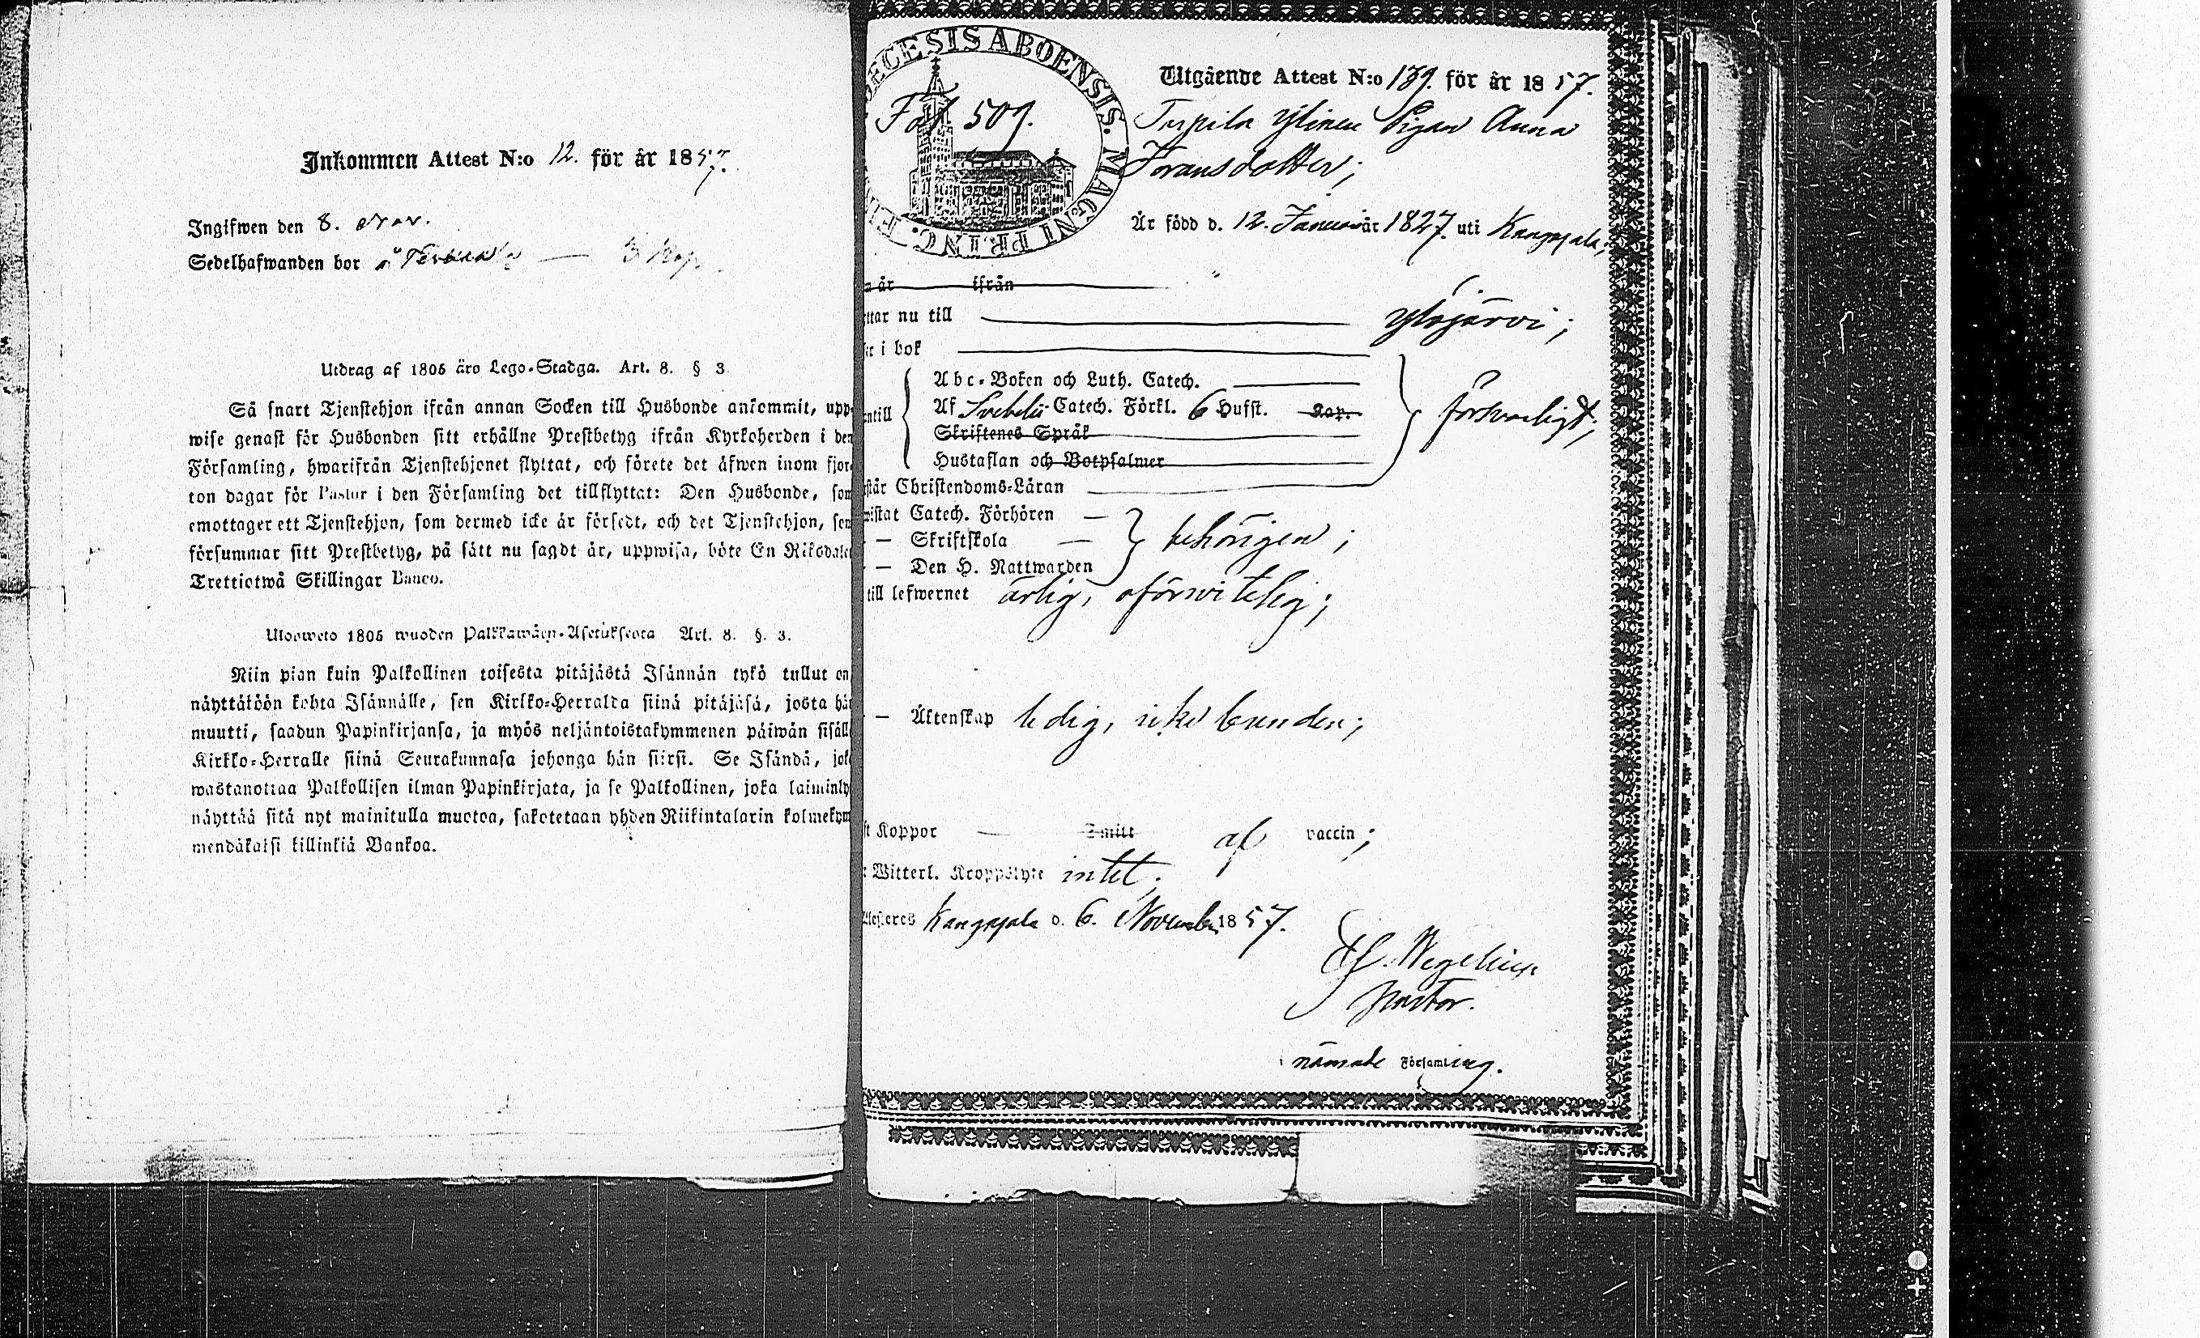 Inkommen Attest N:o 12. för år 1857.
Ingifwen den 8. Nov.
Sedelhafwanden bor å
Utdrag af 1805 års Lego-Stadga. Art. 8. § 3.
Så snart Tjenstehjon ifrån annan Socken till Husbonde ankommit, upp-
wise genast för Husbonden sitt erhållne Prestbetyg ifrån Kyrkoherden i den
Församling, hwarifrån Tjenstehjonet flyttat, och förete det äfwen inom fjor-
ton dagar för Pastor i den Församling det tillflyttat: Den Husbonde, som
emottager ett Tjenstehjon, som dermed icke är försedt, och det Tjenstehjon, som
försummar sitt Prestbetyg, på sätt nu sagdt är, uppwisa, böte En Riksdaler
Trettiotwå Skillingar Banco.
Uloosweto 1805 wuoden Palkkawäen-Asetuksesta Art. 8. §. 3.
Niin pian kuin Palkollinen toisesta pitäjästä Isännän tykö tullut on,
näyttäköön kohta Isännälle, sen Kirkko-Herralda siinä pitäjäsä, josta hän
muutti, saadun Papinkirjansa, ja myös neljäntoistakymmenen päiwän sisällä
Kirkko-Herralle siinä Seurakunnasa johonga hän siirsi. Se Isändä, joka
wastanottaa Palkollisen ilman Papinkirjata, ja se Palkollinen, joka laiminly
näyttää sitä nyt mainitulla muotoa, sakotetaan yhden Riikintalarin kolmekym-
mendäkaksi killinkiä Bankoa.
DIOECESIS ABOENSIS. MAGNI PRINC. FIN
Fol 509.
Utgående Attest N:o 139. för år 1857.
Tarpila Ylinen Pigan Anna
Joransdotter;
Är född d. 12. Januari år 1827. uti Kangasala;
år ifrån
ttar nu till Ylöjärvi;
er i bok
Abc-Boken och Luth. Catech.
ntill Af Svebelii Catech. Förkl. 6 Hufst. Kap. försvarligt;
Skriftenes Språk
Hustaflan och Botpsalmer
står Christendoms-Läran
wistat Catech. Förhören
— Skriftskola behörigen;
— Den H. Nattwarden
till lefwernet ärlig, oförvitelig;
— Äktenskap ledig, icke bunden;
ft Koppor — Smitt af vaccin;
Witterl. Kroppslyte intet.
Attesteres Kangasala d. 6. November 1857.
Wegelius
Pastor.
nämnde Församling.